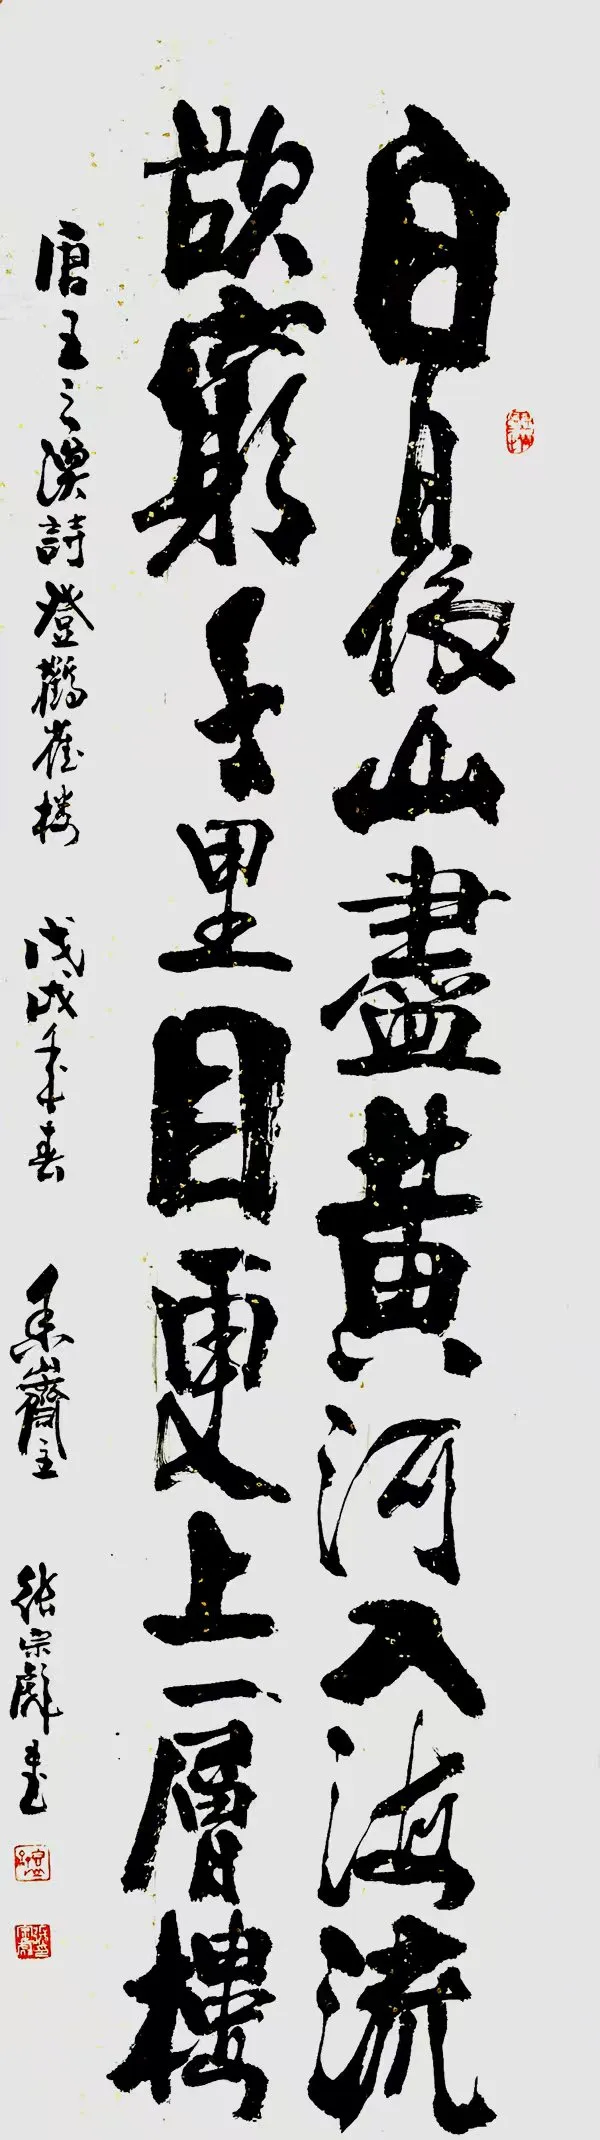 白日依山盡黄河入海流
欲窮千里目更上一層樓
唐王之渙詩登鸛雀楼 戊戌年春 山齋主 张宗彪書